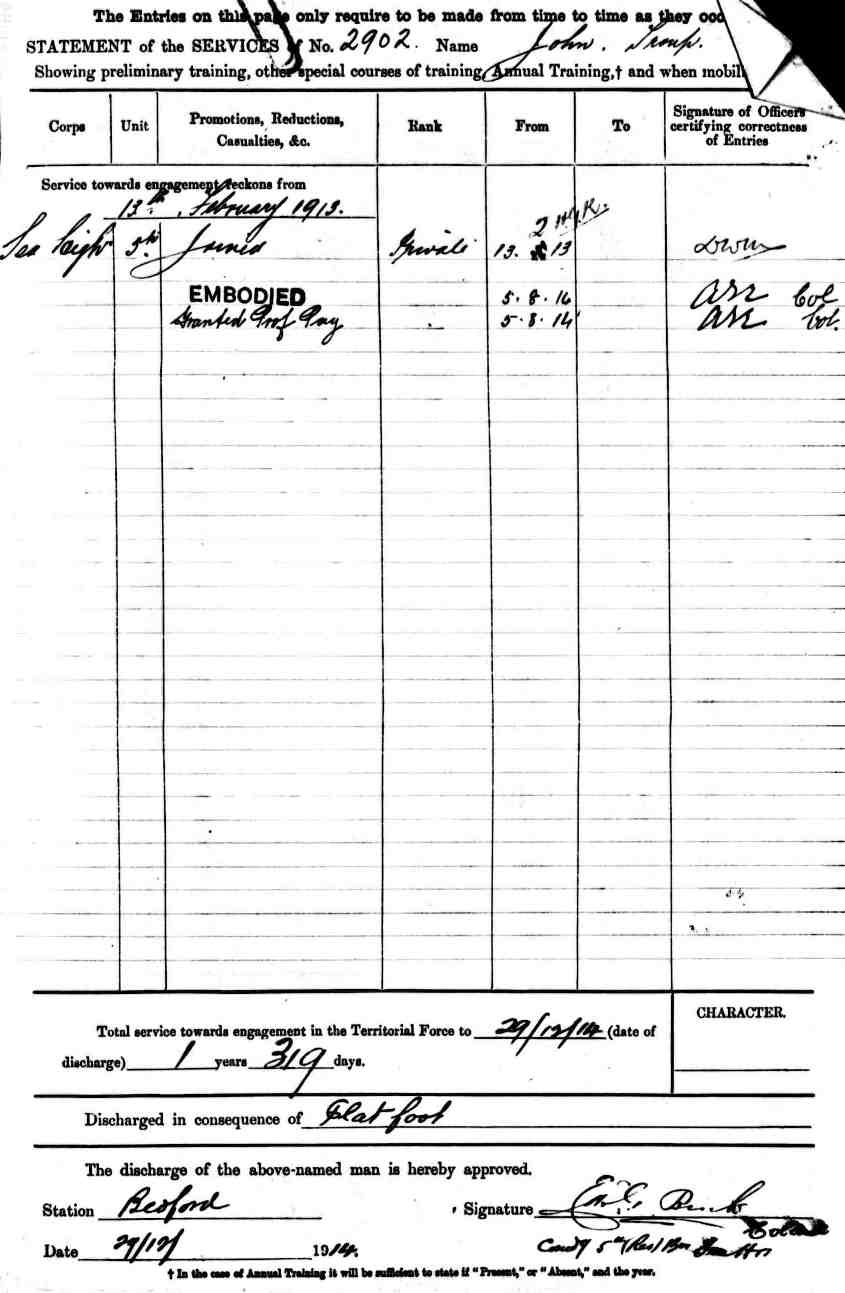 The Entries on this page only require to be made from time to time as they occ
STATEMENT of the SERVICES of No. 2902. Name John. Troup.
Showing preliminary training, other special courses of training, Annual Training,† and when mobil
Corps Unit Promotions, Reductions, Casualties, &c. Rank From To Signature of Officers certifying correctness of Entries
Service towards engagement reckons from
13th February 1913.
Sea High 5th Joined Private 13. 13
EMBODIED 5. 8. 14 Col
Granted Prof Pay 5. 8. 14 Col.
CHARACTER.
Total service towards engagement in the Territorial Force to 29/12/14 (date of
discharge) 1 years 319 days.
Discharged in consequence of Flat foot
The discharge of the above-named man is hereby approved.
Station Bedford Signature
Date 29/12/ 1914. Comdg 5th (Res) Bn
† In the case of Annual Training it will be sufficient to state if "Present," or "Absent," and the year.